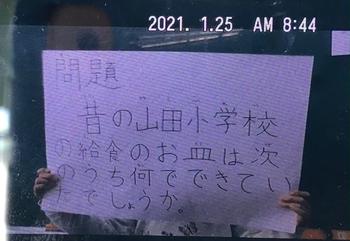 2021. 1.25 AM 8:44
問題
昔の山田小学校
の給食のお皿は次
のうち何でできてい
たでしょうか。